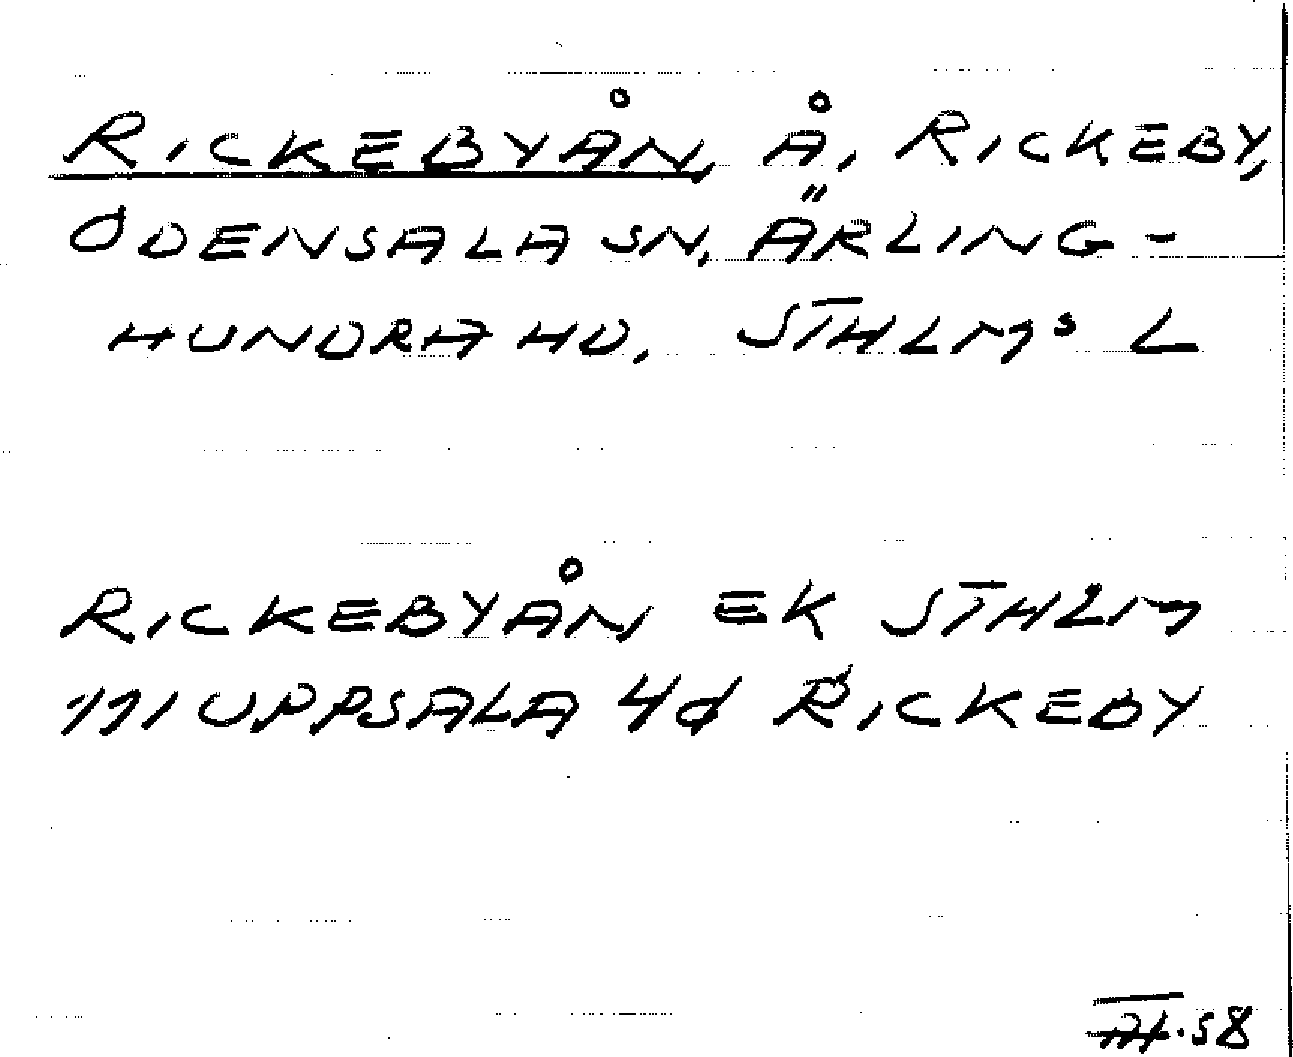 RICKEBYÅN, Å, RICKEBY,
ODENSALA SN, ÄRLING-
HUNDRA HD, STHLMS L
RICKEBYÅN EK STHLM
111 UPPSALA 4d RICKEBY